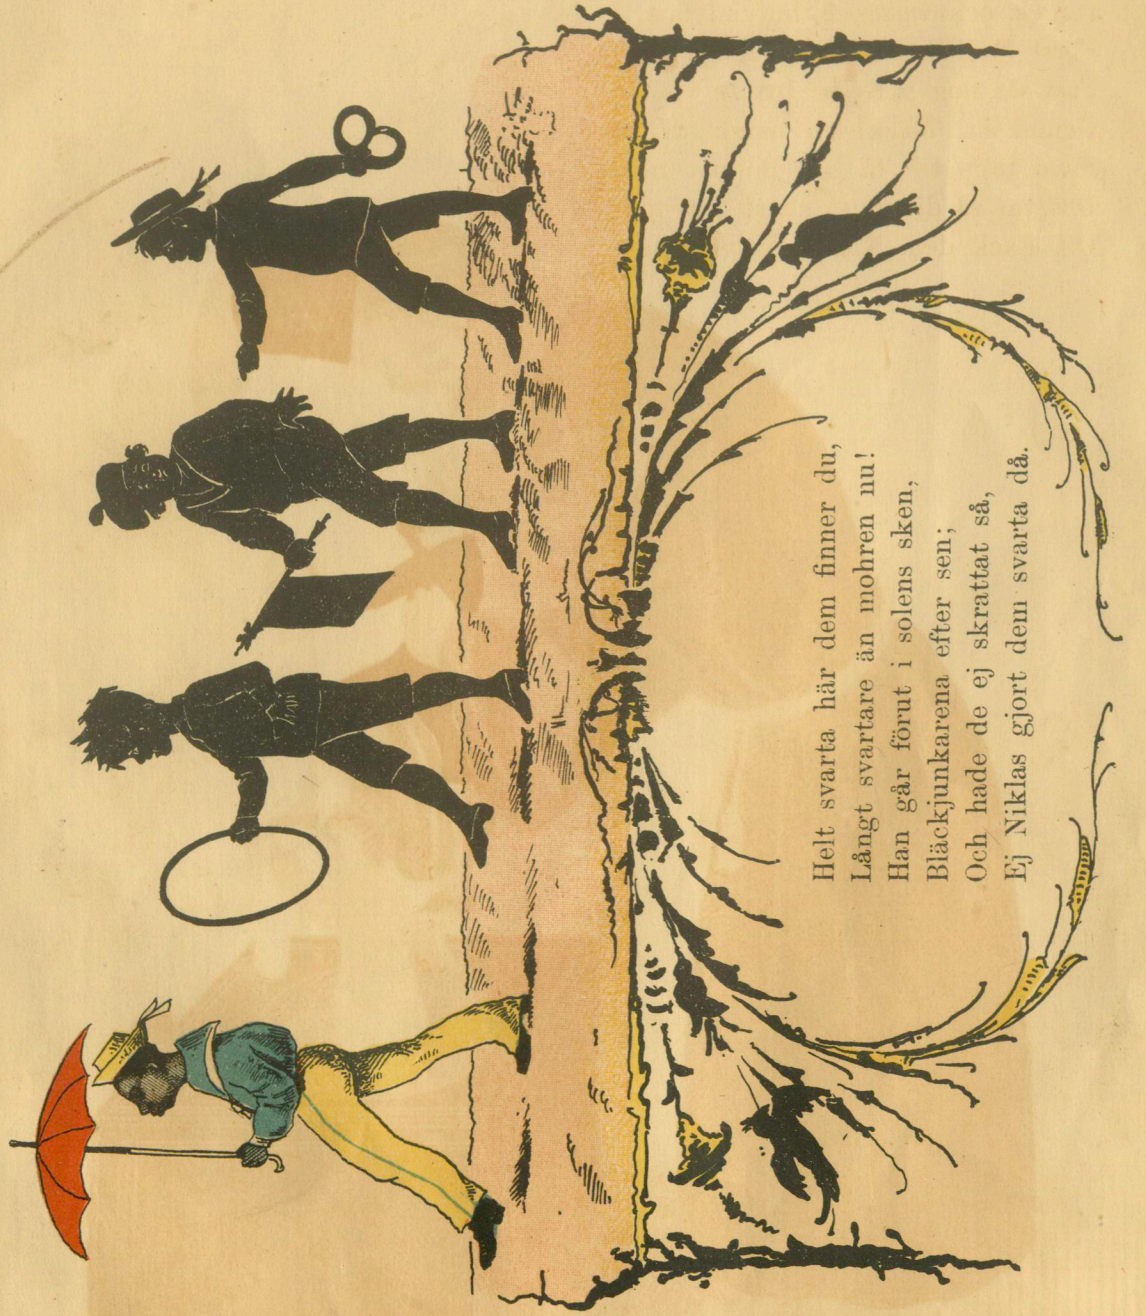 Helt svarta här dem finner du,
Långt svartare än mohren nu!
Han går förut i solens sken,
Bläckjunkarena efter sen;
Och hade de ej skrattat så,
Ej Niklas gjort dem svarta då.